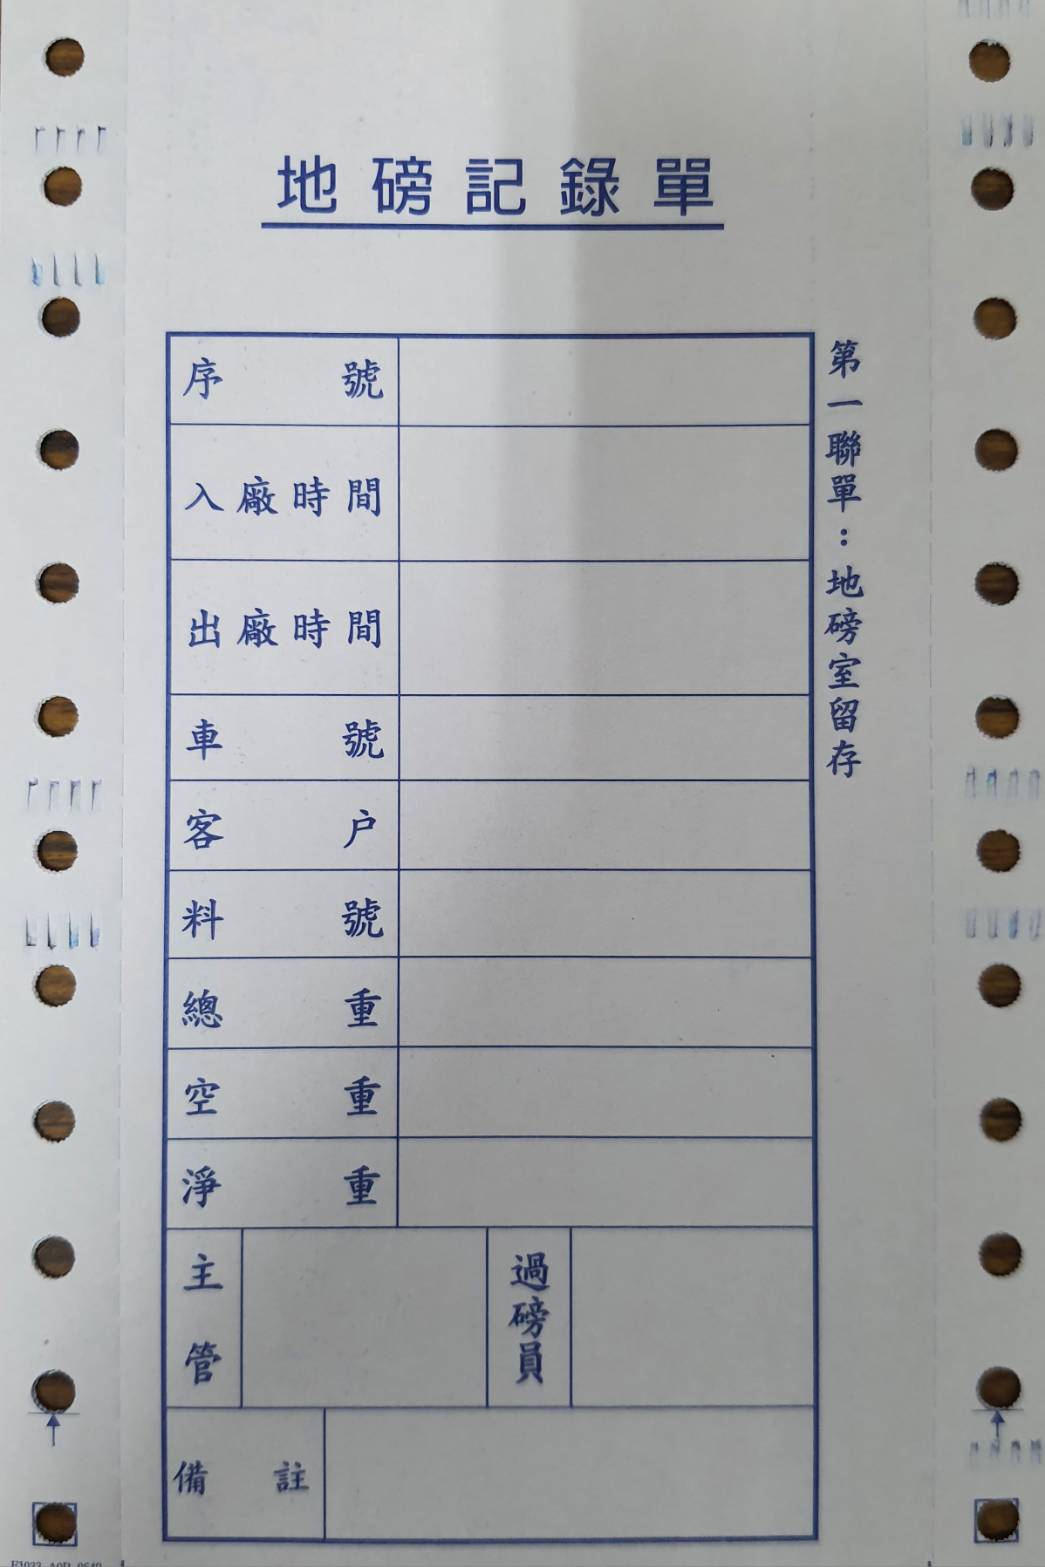 地磅記錄單
序號
入廠時間
出廠時間
車號
客戶
料號
總重
空重
淨重
主管
過磅員
備註
第一聯單：地磅室留存